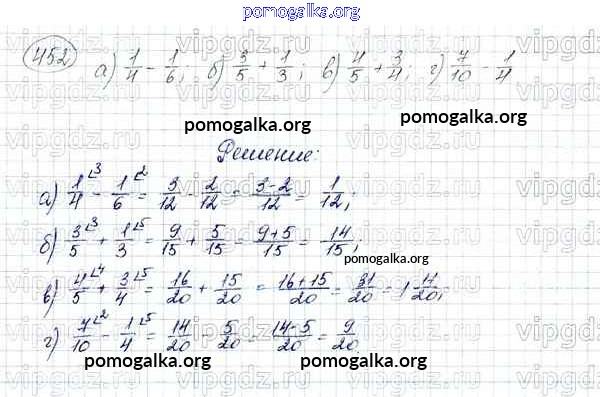 pomogalka.org
452 а) 1/4 - 1/6; б) 3/5 + 1/3; в) 4/5 + 3/4; г) 7/10 - 1/4
pomogalka.org
pomogalka.org
Решение:
а) 1/4 ⌞3 - 1/6 ⌞2 = 3/12 - 2/12 = 3-2/12 = 1/12;
б) 3/5 ⌞3 + 1/3 ⌞5 = 9/15 + 5/15 = 9+5/15 = 14/15;
pomogalka.org
в) 4/5 ⌞4 + 3/4 ⌞5 = 16/20 + 15/20 = 16+15/20 = 31/20 = 1 11/20;
г) 7/10 ⌞2 - 1/4 ⌞5 = 14/20 - 5/20 = 14-5/20 = 9/20.
pomogalka.org
pomogalka.org
vipgdz.ru vipgdz.ru vipgdz.ru